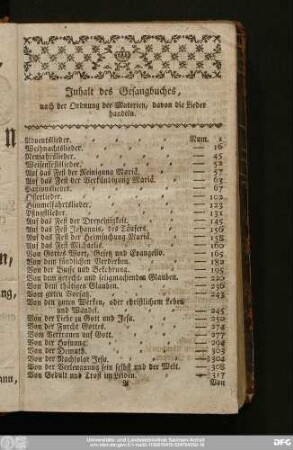 Inhalt des Gesangbuches,
nach der Ordnung der Materien, davon die Lieder
handeln.
Adventslieder. Num. 1
Weihnachtslieder. — 16
Neujahrslieder. — 45
— 52
Auf das Fest der Reinigung Mariä. — 57
Auf das Fest der Verkündigung Mariä. — 63
Passionslieder. — 67
Osterlieder. — 102
Himmelfahrtslieder. — 123
Pfingstlieder. — 131
Auf das Fest der Dreyeinigkeit. — 145
Auf das Fest Johannis, des Täufers. — 156
Auf das Fest der Heimsuchung Mariä. — 158
Auf das Fest Michaelis. — 160
Von Gottes Wort, Gesetz und Evangelio. — 165
Von dem sündlichen Verderben. — 182
Von der Buße und Bekehrung. — 195
Von dem gerecht- und seligmachenden Glauben. — 220
Von dem thätigen Glauben. — 236
Vom guten Vorsatz. — 243
Von den guten Werken, oder christlichem Leben
und Wandel. — 245
Von der Liebe zu Gott und Jesu. — 250
Von der Furcht Gottes. — 274
Vom Vertrauen auf Gott. — 277
Von der Hofnung. — 294
Von der Demuth. — 303
Von der Nachfolge Jesu. — 304
Von der Verleugnung sein selbst und der Welt. — 308
Von Gedult und Trost im Leiden. — 317
Von